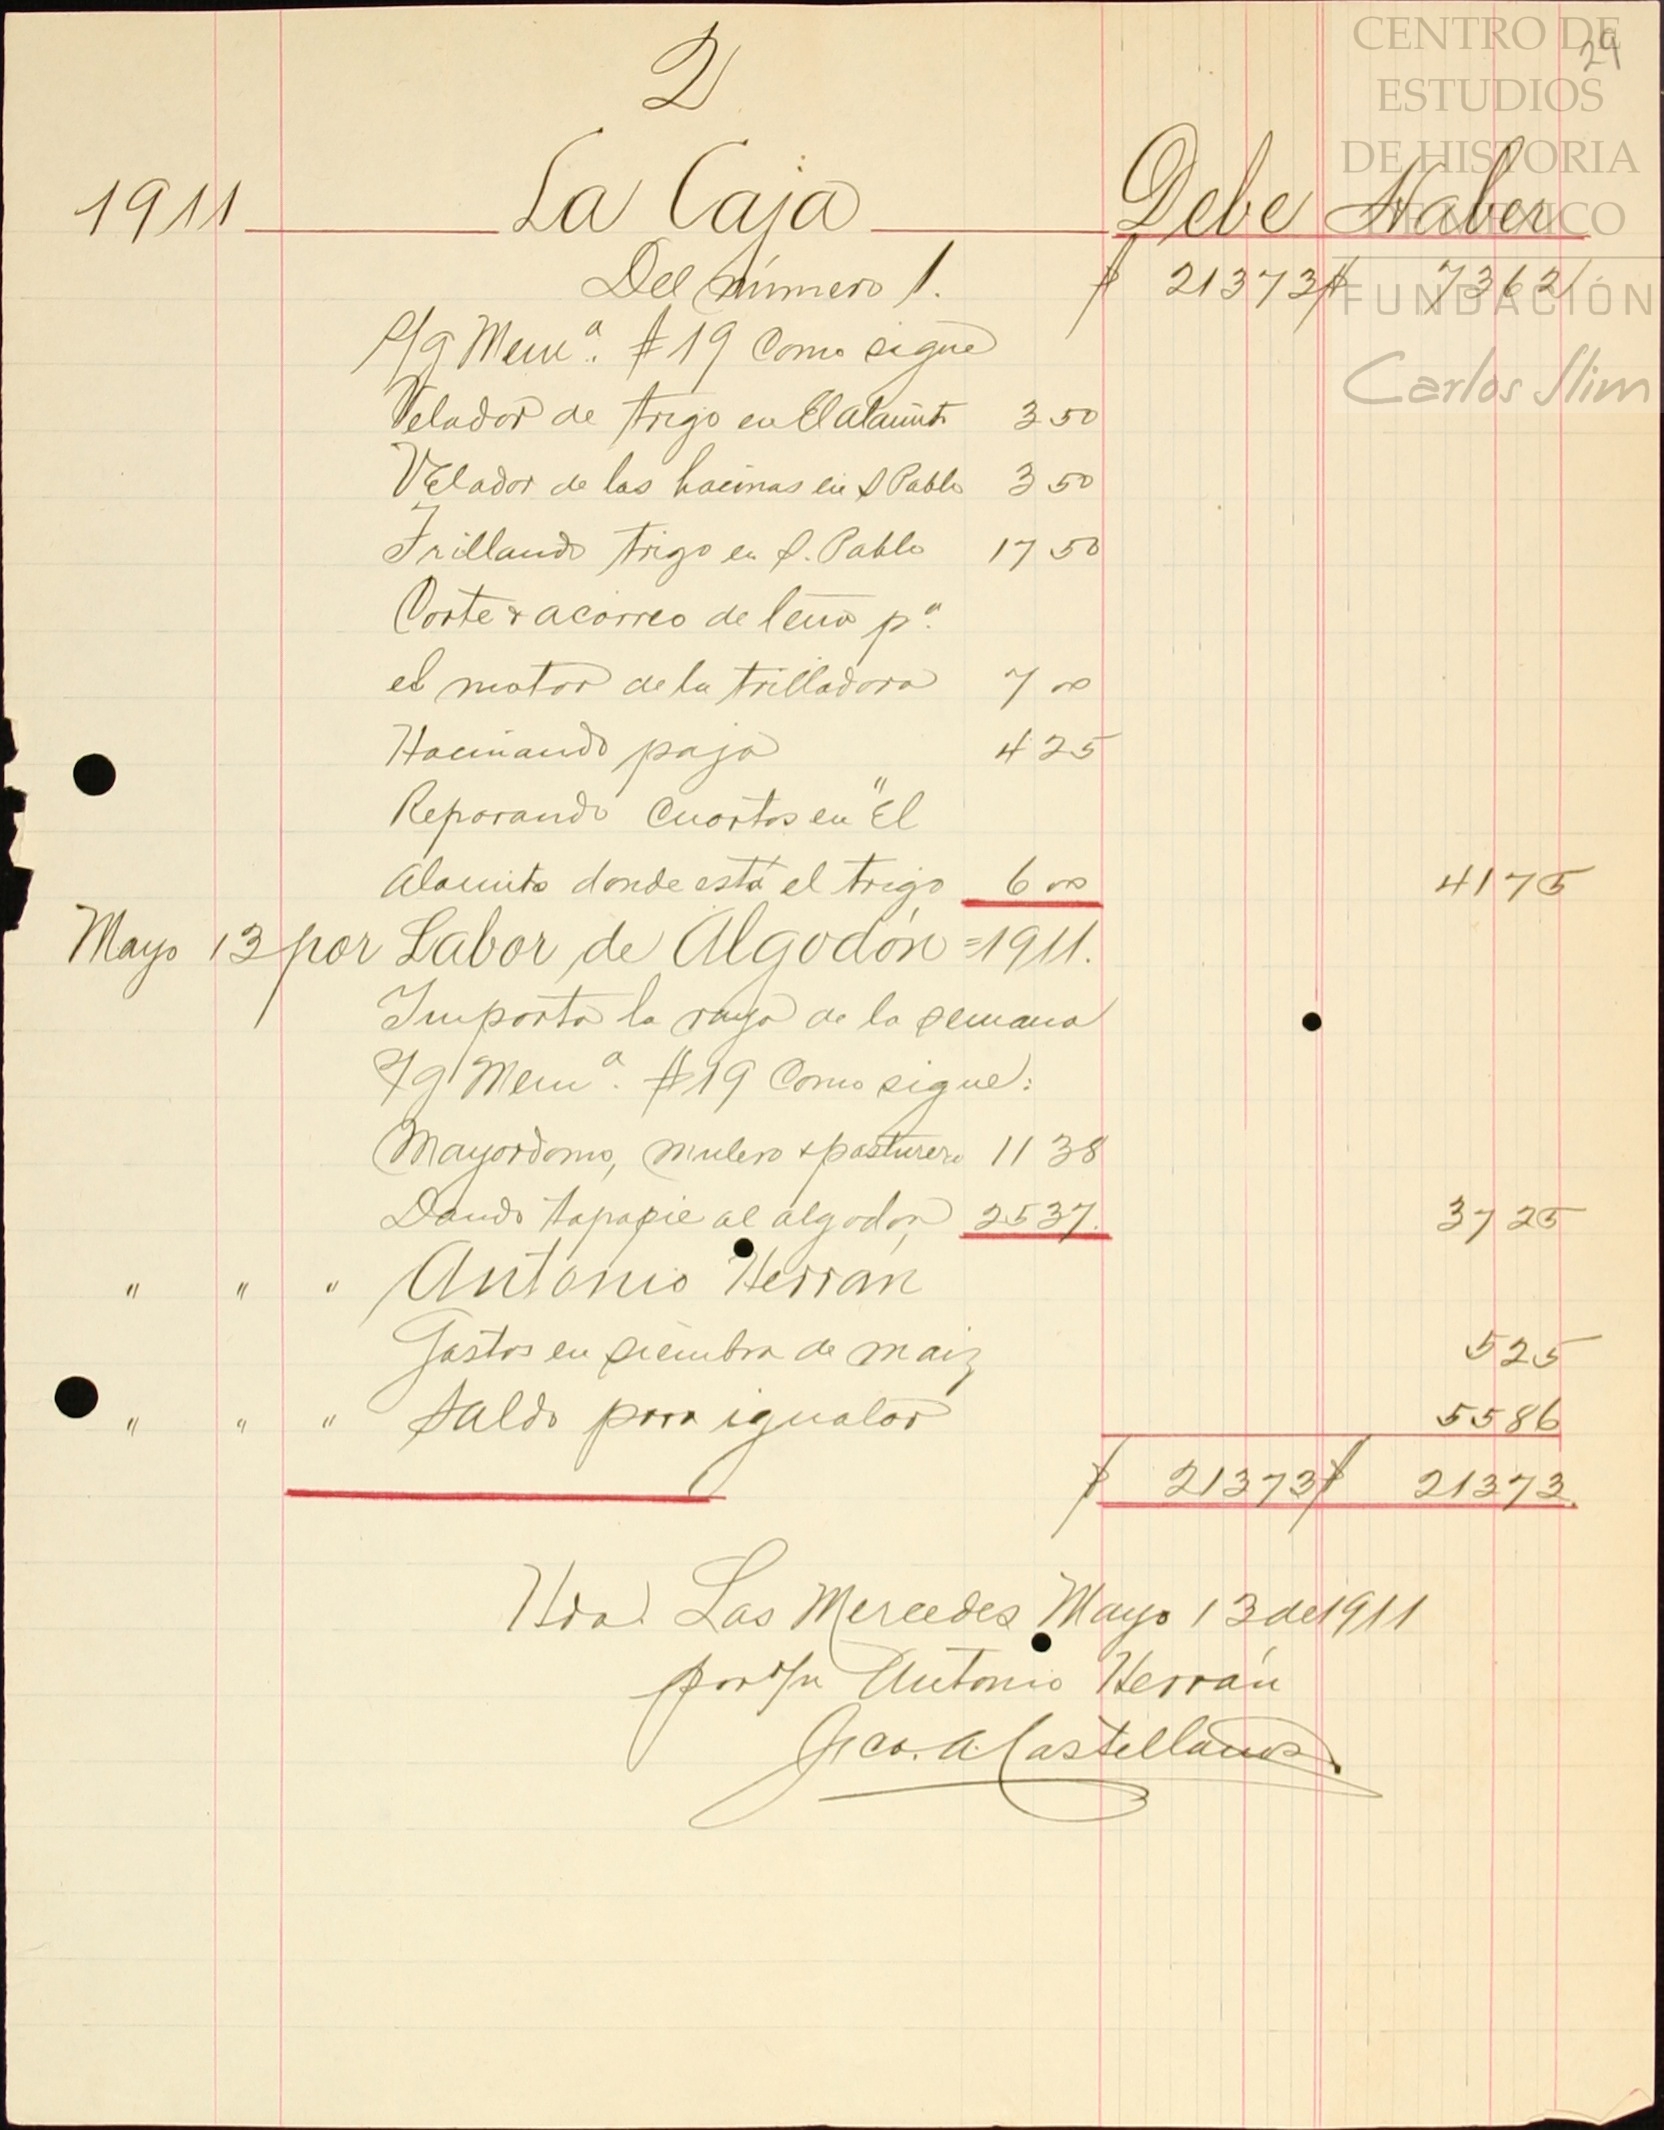 CENTRO DE
ESTUDIOS
DE HISTORIA
DE MÉXICO
FUNDACIÓN
Carlos Slim
29
2
1911 La Caja Debe Haber
Del número 1. $ 21373 $ 7362
S/g Mema. #19 Como sigue
Velador de trigo en El Alamito 3 50
Velador de las hacinas en S Pablo 3 50
Trillando trigo en S. Pablo 17 50
Corte & acarreo de leña pa.
el motor de la trilladora 7 00
Hacinando paja 4 25
Reparando cuartos en "El
Alamito donde está el trigo 6 00 4175
Mayo 13 por Labor de Algodón = 1911.
Importa la raya de la semana
S/g Mema. #19 Como sigue:
Mayordomo, mulero & pasturero 11 38
Dando tapapie al algodón 2537. 3725
" " " Antonio Herrán
Gastos en siembra de maiz 525
" " " Saldo para igualar 5586
$ 21373 $ 21373.
Hda. Las Mercedes Mayo 13 de 1911
por Antonio Herrán
Fco. A. Castellanos